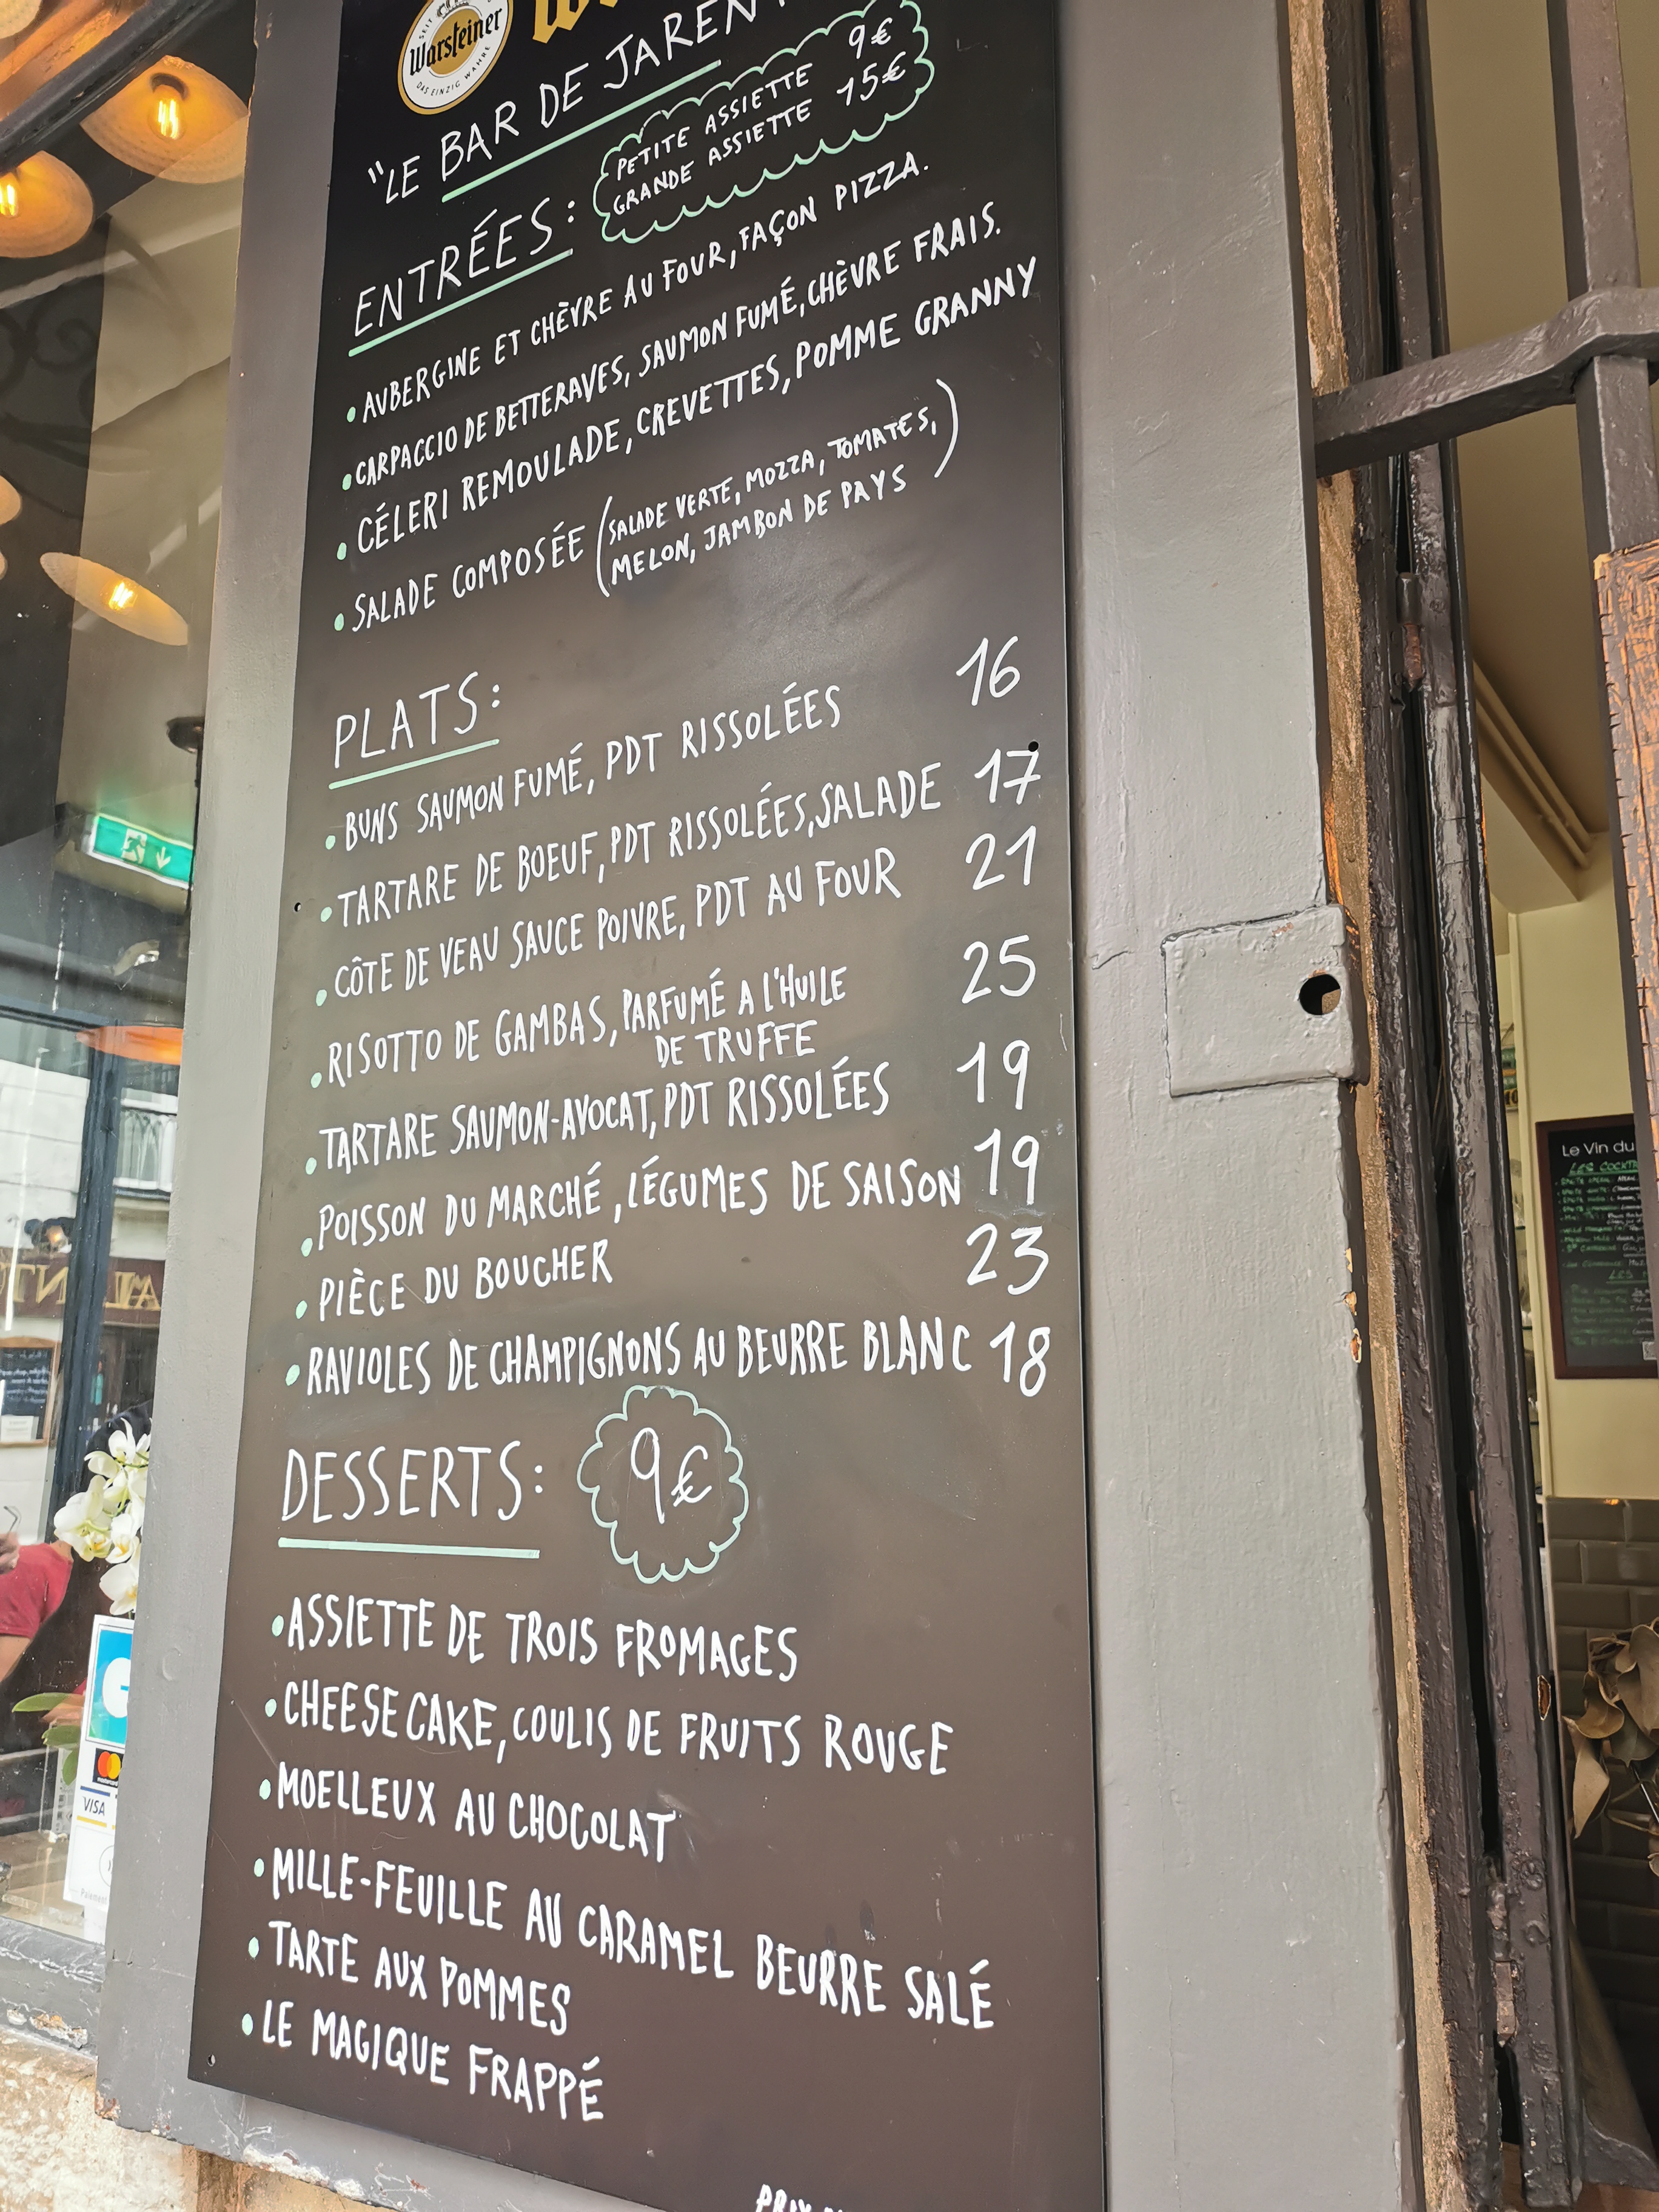 SEIT
Warsteiner
DAS EINZIG WAHRE
"LE BAR DE JAREN
PETITE ASSIETTE 9€
GRANDE ASSIETTE 15€
ENTRÉES:
• AUBERGINE ET CHÈVRE AU FOUR, FAÇON PIZZA.
• CARPACCIO DE BETTERAVES, SAUMON FUMÉ, CHÈVRE FRAIS.
• CÉLERI REMOULADE, CREVETTES, POMME GRANNY
• SALADE COMPOSÉE (SALADE VERTE, MOZZA, TOMATES,
MELON, JAMBON DE PAYS)
PLATS:
• BUNS SAUMON FUMÉ, PDT RISSOLÉES 16
• TARTARE DE BOEUF, PDT RISSOLÉES, SALADE 17
• CÔTE DE VEAU SAUCE POIVRE, PDT AU FOUR 21
• RISOTTO DE GAMBAS, PARFUMÉ A L'HUILE 25
DE TRUFFE
• TARTARE SAUMON-AVOCAT, PDT RISSOLÉES 19
• POISSON DU MARCHÉ, LÉGUMES DE SAISON 19
• PIÈCE DU BOUCHER 23
• RAVIOLES DE CHAMPIGNONS AU BEURRE BLANC 18
DESSERTS: 9€
• ASSIETTE DE TROIS FROMAGES
• CHEESE CAKE, COULIS DE FRUITS ROUGE
• MOELLEUX AU CHOCOLAT
• MILLE-FEUILLE AU CARAMEL BEURRE SALÉ
• TARTE AUX POMMES
• LE MAGIQUE FRAPPÉ
PRIX
Le Vin du
LES COCKT
VISA